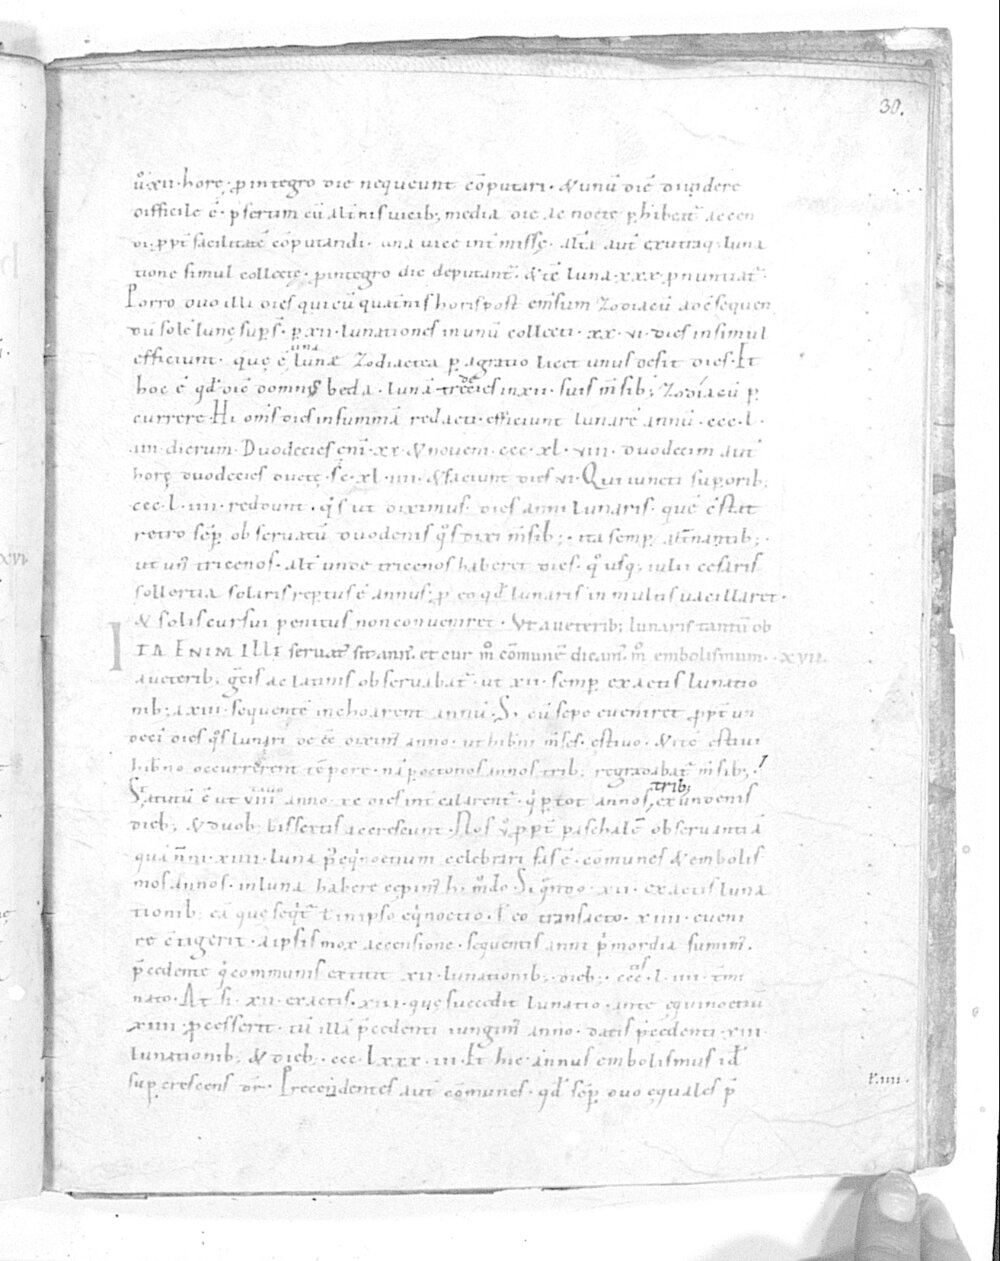 30.
ū xii · horę · p̄ integro die nequeunt cōputari · & unū diē diuidere
difficile ē · p̄sertim cū alt̄nis uicib; media die ac nocte p̱hibeat̄ accen
di · p̱pt̄ facilitatē cōputandi · una uice int̄missę · alia aut̄ ex utraq; luna
tione simul collectę · p̱ integro die deputant̄ · & iē luna · xxx · p̱nuntiat̄ ·
Porro duo illi dies qui cū quat̄nis horis post emēsum zodiacū adcēsequen
dū solē lunę sup̄s̄ · p̱ xii · lunationes in unū collecti · xx · vi · dies insimul
efficiunt · quę ē una lunae zodiaca p̱agratio licet unus desit dies · Et
hoc ē qd̄ diē domnus beda · lunā tredecies in xii · suis m̄sib; zodiacū p̱
currere · Hi om̄s dies in summā redacti · efficiunt lunarē annū · ccc · l ·
iiii · dierum · Duodecies eni · xx · & novem · ccc · xl · viii · duodecim aut̄
horę duodecies ductę · s̄c · xl · iiii · & faciunt dies vi · Qui iuncti superiorib;
ccc · l · iiii · reddunt · q̄s ut diximus dies anni lunaris · quē c̄stat
retro semp̱ observatū duodenis q̄s dixi m̄sib; · ita semp̱ alt̄nantib; ·
ut un̄ tricenos · alt̄ undetricenos haberet dies · q̄usq; iulii cesaris
sollertia solaris rep̱tus ē annus · p̱ eo qd̄ lunaris in multis uacillaret ·
& solis cursui penitus non conveniret · Ut a ueterib; lunaris tantū ob
ITA ENIM ILLI servat̄ sit ann̄ · et cur m̄ cōmunē dicam̄ · m̄ embolismum · xvii
a ueterib; gr̄cis ac latinis observabat̄ · ut xii · semp̱ exactis lunatio
nib; a xiii · sequentē inchoarent annū · S; cū sepe eveniret p̱pt̄ un
deci dies q̄s lunari deēē dixim̄ anno · ut hib̄ni m̄ses estivo · & itē estivi
hib̄no occurrerent tēpore · nā p̱ octonos annos trib; regradabat̄ m̄sib;
Statutū ē ut viii tavo anno · xc dies int̄calarent̄ · q̄ p̱ tot annos trib; ex undenis
dieb; & duob; bissextis accrescunt · Nos v̊ p̱pt̄ paschalē observantiā
quā n̄ nisi xiiii · luna p̄ eq̄noctium celebrari fas ē · cōmunes & embolis
mos annos · in luna habere cepim̄ h; m̄do · Si q̄ndo · xii · exactis luna
tionib; ea quę seq̄t̄ t̄ in ipso eq̄noctio · t̄ eo transacto · xiiii · eveni
re c̄tigerit · a ipsis mox accensione · sequentis anni p̄mordia sumim̄ ·
p̄cedente q̄ communis extitit xii · lunationib; · dieb; · ccc · l · iiii · t̄mi
nato · At si · xii · exactis · xiii · quę succedit lunatio · ante equinoctiū
xiiii · p̱cesserit · tū illā p̄cedenti iungim̄ anno · datis p̄cedenti · xiii ·
lunationib; & dieb; · ccc · lxxx · iii · Et hic annus embolismus id̄
sup̱crescens dr̄ · Precendentes aut̄ cōmunes · qd̄ semp̱ duo ęquales p̄